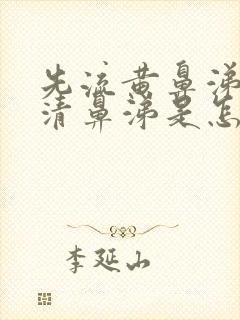 先流黄鼻涕
清鼻涕是怎
李延山